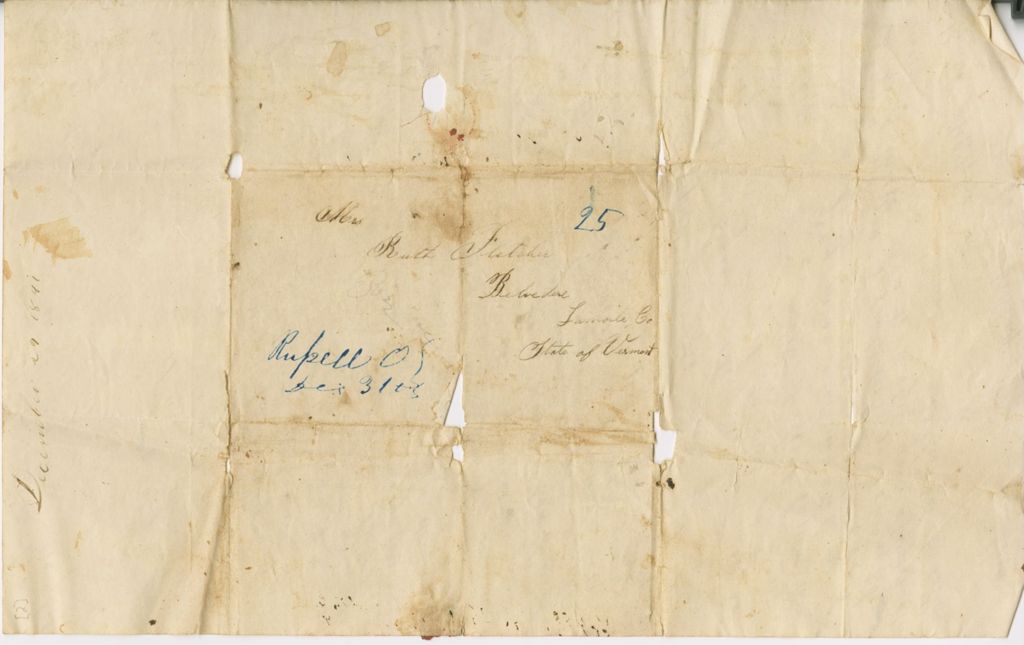 Mrs
25
Ruth Fletcher
Belvedere
Lamoile Co
State of Vermont
Russell O
Dec 31st
December 1841
[2]